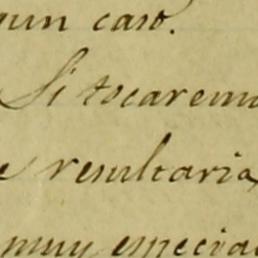 gun caso.
Si tocaremo
e resultaria
muy especia